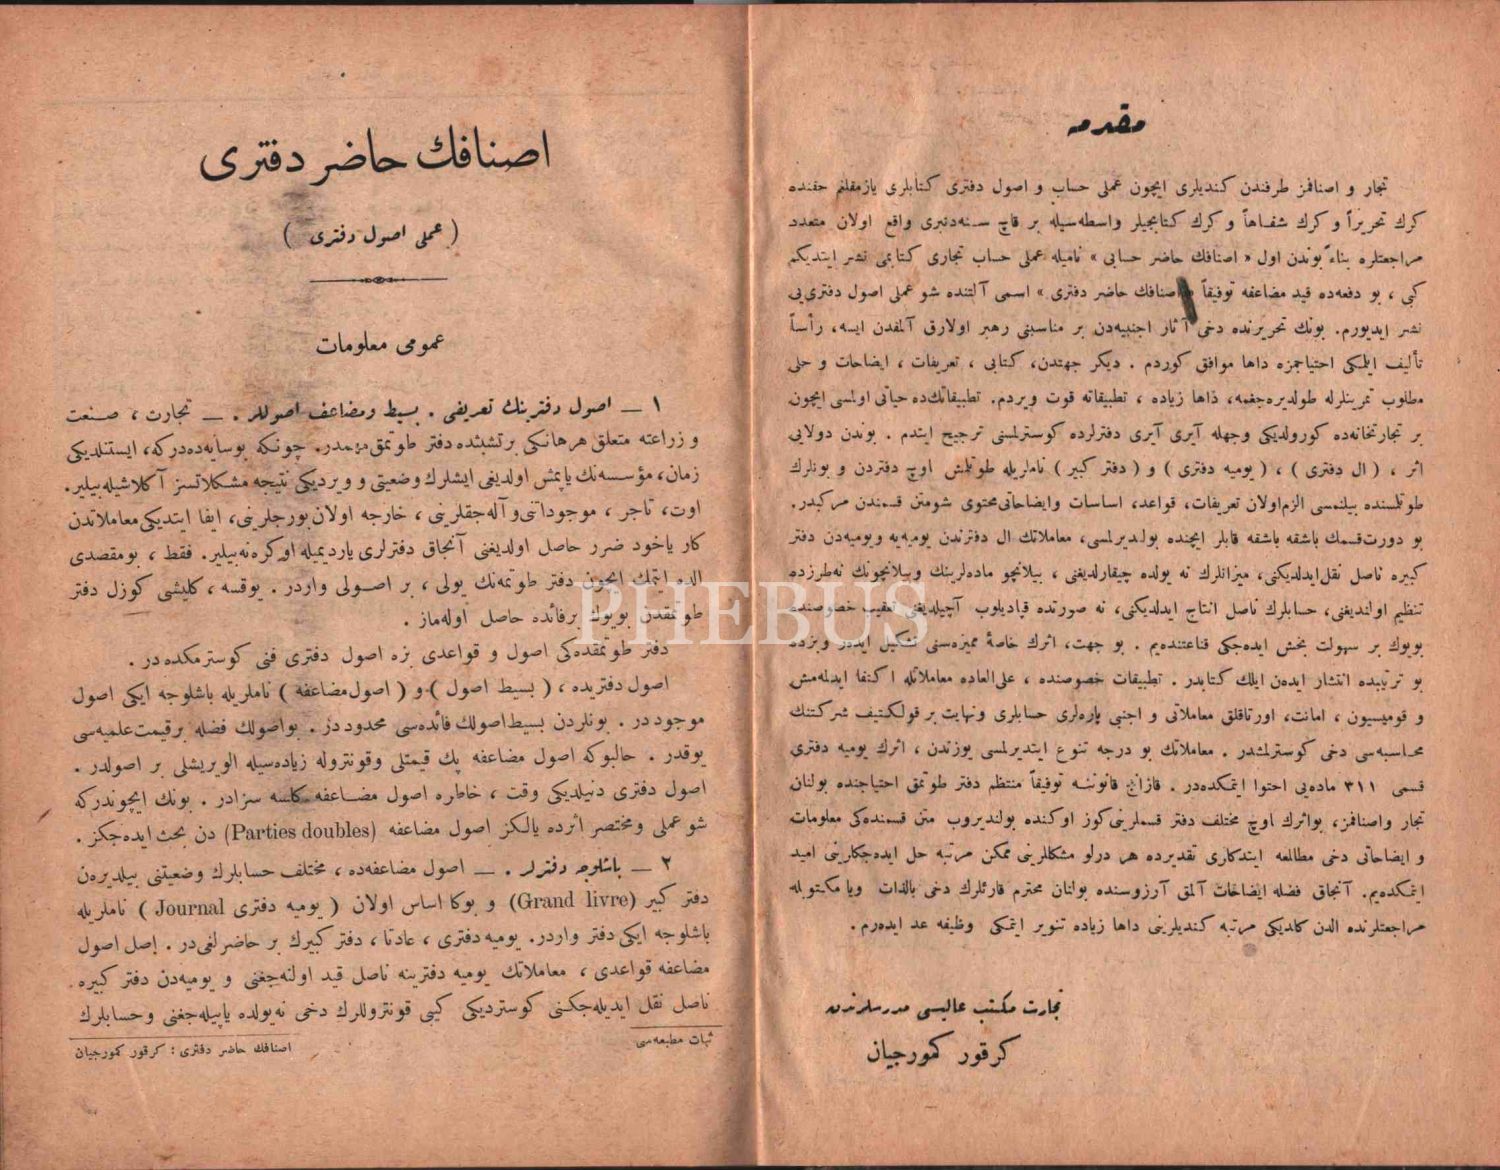 مقدمه
تجار و اصنافمز طرفندن كنديلری ايچون عملی حساب و اصول دفتری كتابلری يازمقلغم حقنده
كرك تحريراً و كرك شفاهاً و كرك كتابجيلر واسطه‌سيله بر قاچ سنه‌دنبری واقع اولان متعدد
مراجعتلره بناءً بوندن اول « اصنافك حاضر حسابی » ناميله عملی حساب تجاری كتابمی نشر ايتديكم
كبی ، بو دفعه‌ده قيد مضاعفه توفيقاً « اصنافك حاضر دفتری » اسمی آلتنده شو عملی اصول دفتری‌يی
نشر ايديورم. بونك تحريرنده دخی آثار اجنبيه‌دن بر مناسبنی رهبر اولارق آلمقدن ايسه، رأساً
تأليف ايلمكی احتياجمزه داها موافق كوردم . ديكر جهتدن، كتابی ، تعريفات ، ايضاحات و حلی
مطلوب تمرينلرله طولديره‌جغمه، داها زياده ، تطبيقاته قوت ويردم. تطبيقاتك‌ده حياتی اولمسی ايچون
بر تجارتخانه‌ده كورولديكی وجهله آيری آيری دفترلرده كوسترلمسنی ترجيح ايتدم . بوندن دولايی
اثر ، ( ال دفتری ) ، ( يوميه دفتری ) و ( دفتر كبير ) ناملريله طوتلمش اوچ دفتردن و بونلرك
طوتلمسنده بيلنمسی الزم‌اولان تعريفات، قواعد، اساسات وايضاحاتی‌محتوی شومتن قسمندن مركبدر.
بو دورت‌قسمك باشقه باشقه قابلر ايچنده بولنديرلمسی، معاملاتك ال دفترندن يوميه‌يه ويوميه‌دن دفتر
كبيره ناصل نقل‌ايدلديكنی، ميزانلرك نه يولده چيقارلديغنی ، بيلانچو ماده‌لرينك وبيلانچونك نه‌طرزده
تنظيم اولنديغنی، حسابلرك ناصل انتاج ايدلديكنی، نه صورتده قپاديلوب آچيلديغنی تعقيب خصوصنده
بويوك بر سهولت بخش ايده‌جكی قناعتنده‌يم . بو جهت، اثرك خاصهٔ مميزه‌سنی تشكيل ايدر وبزده
بو ترتيبده انتشار ايدن ايلك كتابدر. تطبيقات خصوصنده ، علی‌العاده معاملاتله اكتفا ايدلمه‌مش
و قوميسيون ، امانت، اورتاقلق معاملاتی و اجنبی پاره‌لری حسابلری ونهايت بر قولكتيف شركتنك
محاسبه‌سی دخی كوسترلمشدر . معاملاتك بو درجه تنوع ايتديرلمسی يوزندن ، اثرك يوميه دفتری
قسمی ٣١١ ماده‌يی احتوا ايتمكده‌در . قازانج قانوننه توفيقاً منتظم دفتر طوتمق احتياجنده بولنان
تجار واصنافمز، بواثرك اوچ مختلف دفتر قسملرينی‌كوز اوكنده بولنديروب متن قسمنده‌كی معلومات
و ايضاحاتی دخی مطالعه ايتدكلری تقديرده هر درلو مشكللرينی ممكن مرتبه حل ايده‌جكلرينی اميد
ايتمكده‌يم. آنجاق فضله ايضاحات آلمق آرزوسنده بولنان محترم قارئلرك دخی بالذات ويا مكتوبله
مراجعتلرنده الدن كلديكی مرتبه كنديلرينی داها زياده تنوير ايتمكی وظيفه عد ايده‌رم .
تجارت مكتب عاليسی مدرسلرندن
كرقور كمورجيان
اصنافك حاضر دفتری
( عملی اصول دفتری )
عمومی معلومات
١ — اصول دفترينك تعريفی . بسيط ومضاعف اصوللر . — تجارت ، صنعت
و زراعته متعلق هر هانكی برتشبثده دفتر طوتمق مهمدر. چونكه بوسايه‌ده‌دركه، ايستنلديكی
زمان، مؤسسه‌نك ياپمش اولديغی ايشلرك وضعيتی و ويرديكی نتيجه مشكلاتسز آكلاشيله‌بيلير.
اوت، تاجر ، موجوداتنی و آله‌جقلرينی ، خارجه اولان بورجلرينی، ايفا ايتديكی معاملاتدن
كار ياخود ضرر حاصل اولديغنی آنجاق دفترلری يارديميله اوكره‌نه‌بيلير. فقط ، بومقصدی
الده ايتمك ايچون دفتر طوتمه‌نك يولی ، بر اصولی واردر . يوقسه ، كليشی كوزل دفتر
طوتمقدن بويوك برفائده حاصل اوله‌ماز .
دفتر طوتمقده‌كی اصول و قواعدی بزه اصول دفتری فنی كوسترمكده‌در .
اصول دفتريده ، ( بسيط اصول ) و ( اصول‌مضاعفه ) ناملريله باشلوجه ايكی اصول
موجوددر . بونلردن بسيط‌اصولك فائده‌سی محدوددر . بواصولك فضله برقيمت‌علميه‌سی
يوقدر . حالبوكه اصول مضاعفه پك قيمتلی وقونتروله زياده‌سيله الويريشلی بر اصولدر .
اصول دفتری دنيلديكی وقت ، خاطره اصول مضاعفه كلسه سزادر . بونك ايچوندركه
شوعملی ومختصر اثرده يالكز اصول مضاعفه (Parties doubles) دن بحث ايده‌جكز .
٢ — باشلوجه دفترلر . — اصول مضاعفه‌ده ، مختلف حسابلرك وضعيتنی بيلديره‌ن
دفتر كبير (Grand livre) و بوكا اساس اولان ( يوميه دفتری Journal ) ناملريله
باشلوجه ايكی دفتر واردر. يوميه دفتری ، عادتا ، دفتر كبيرك بر حاضرلغی‌در . اصل اصول
مضاعفه قواعدی ، معاملاتك يوميه دفترينه ناصل قيد اولنه‌جغنی و يوميه‌دن دفتر كبيره
ناصل نقل ايديله‌جكنی كوسترديكی كبی قونتروللرك دخی نه‌يولده ياپيله‌جغنی وحسابلرك
ثبات مطبعه‌سی
اصنافك حاضر دفتری : كرقور كمورجيان
PHEBUS